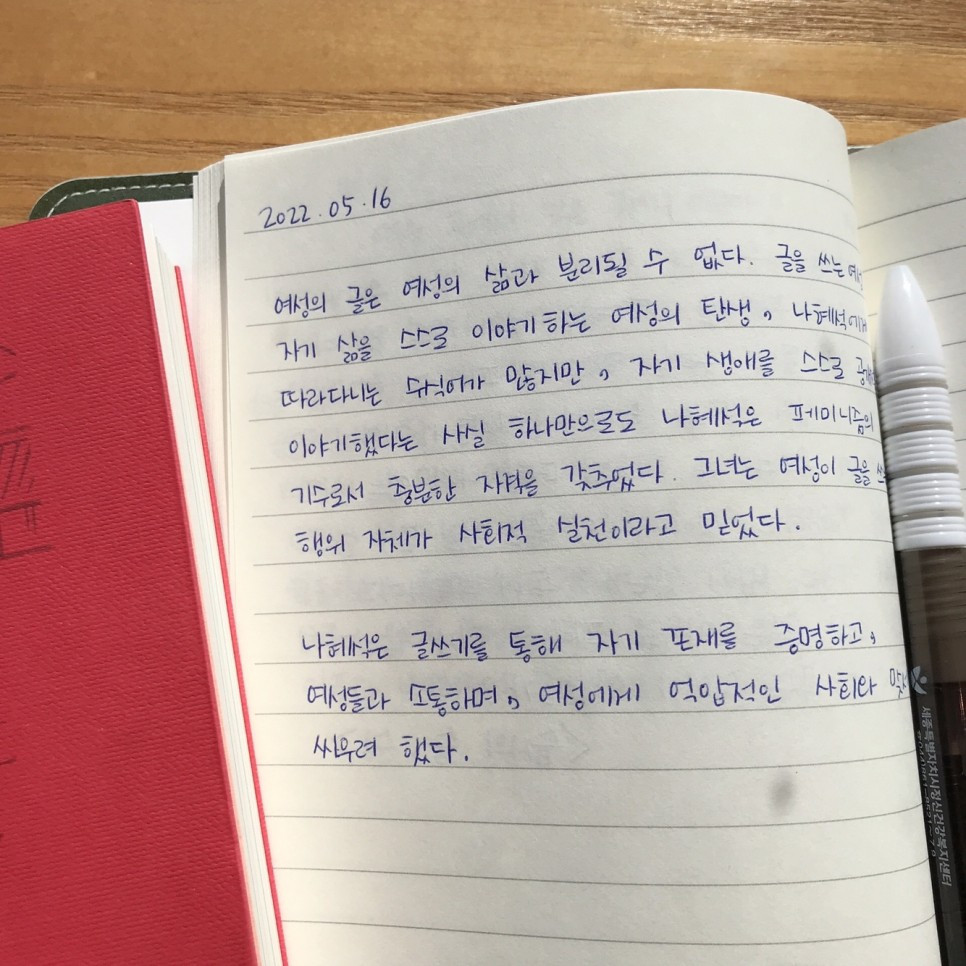 2022.05.16
여성의 글은 여성의 삶과 분리될 수 없다. 글을 쓰는
자기 삶을 스스로 이야기하는 여성의 탄생, 나혜석에게
따라다니는 수식어가 많지만, 자기 생애를 스스로
이야기했다는 사실 하나만으로도 나혜석은 페미니즘의
기수로서 충분한 자격을 갖추었다. 그녀는 여성이 글을
행위 자체가 사회적 실천이라고 믿었다.
나혜석은 글쓰기를 통해 자기 존재를 증명하고,
여성들과 소통하며, 여성에게 억압적인 사회와
싸우려 했다.
세종특별자치시정신건강복지센터